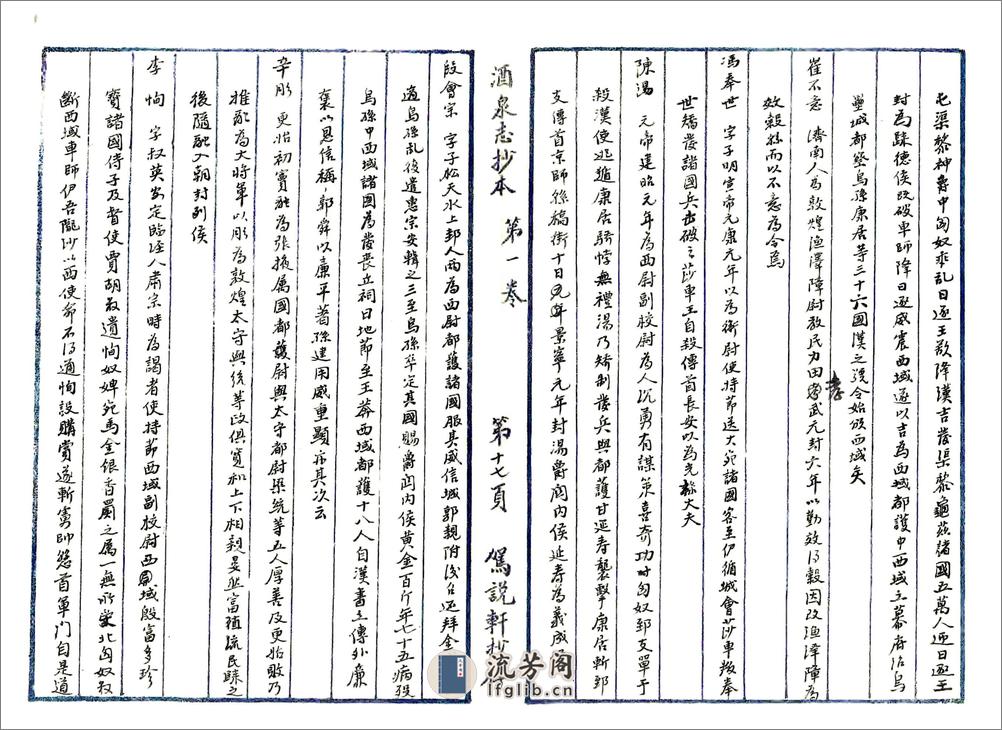 屯渠黎神爵中匈奴乖乱日逐王欲降漢吉發渠黎龜兹諸國五萬人迎日逐王
封為歸德侯既破車師降日逐威震西域遂以吉為西域都護中西域立幕府治烏
壘城都坖烏孫康居等三十六國漢之號令始頒西域矣
崔不意 濟南人為敦煌渔澤障尉教民力田孝武元封六年以勤效得穀因改渔澤障為
效穀縣而以不意為令焉
馮奉世 字子明宣帝元康元年以為衛尉使持节送大宛諸國客至伊循城會莎車叛奉
世矯發諸國兵击破之莎車王自殺傳首長安以為光祿大夫
陳湯 元帝建昭元年為西尉副校尉為人沉勇有謀策喜奇功时匈奴郅支單于
殺漢使逃遁康居骄悖無禮湯乃矯制發兵與都護甘延寿襲擊康居斬郅
支傳首京師縣槁街十日 年景寧元年封湯爵関内侯延寿為義成
酒泉志抄本 第一卷 第十七頁 駕説軒抄
段會宗 字子松天水上邽人两為西尉都護諸國服其威信城郭親附後台还拜金
適烏孫乱後遣惠宗安輯之三至烏孫卒定其國賜爵関内侯黄金百斤年七十五病役
烏孫中西域諸國為發喪立祠曰地節至王莽西域都護十八人自漢書立傳外廉
褒以恩信稱郭舜以廉平著孫建用威重顯 其次云
辛肜 更始初竇融為張掖属國都護尉與太守都尉梁統等五人厚善及更始敗乃
推融為大将军以肜為敦煌太守與統等政俱寬和上下相親晏然富殖流民歸之
後隨融入朝封列侯
李恂 字叔英安定臨泾人肃宗時為謁者使持节西域副校尉西域殷富多珍
寶諸國侍子及督使賈胡数遺恂奴婢宛馬金银香罽之属一無所受北匈奴数
断西域車師伊吾隴沙以西使命不得通恂設購賞遂斬虏帥懸首軍门自是道
流芳阁
lfglib.cn